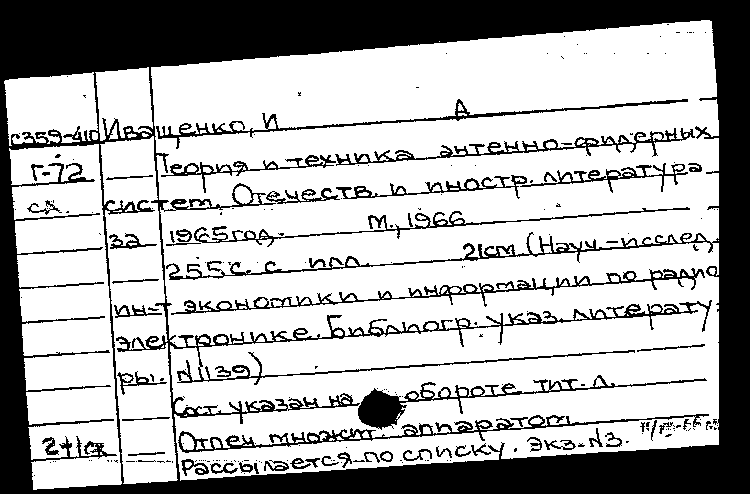 С359-410 Иващенко, И А
Г-72 Теория и техника антенно-фидерных
сх. систем. Отечеств. и иностр. литература
за 1965 год. М., 1966
255 с. с илл. 21 см (Науч.-исслед.
ин-т экономики и информации по радио
электронике. Библиогр. указ. литерату-
ры. N 1139)
Сост. указан на обороте тит. л.
2+1сх Отпеч. множит. аппаратом
Рассылается по списку. Экз. N3.